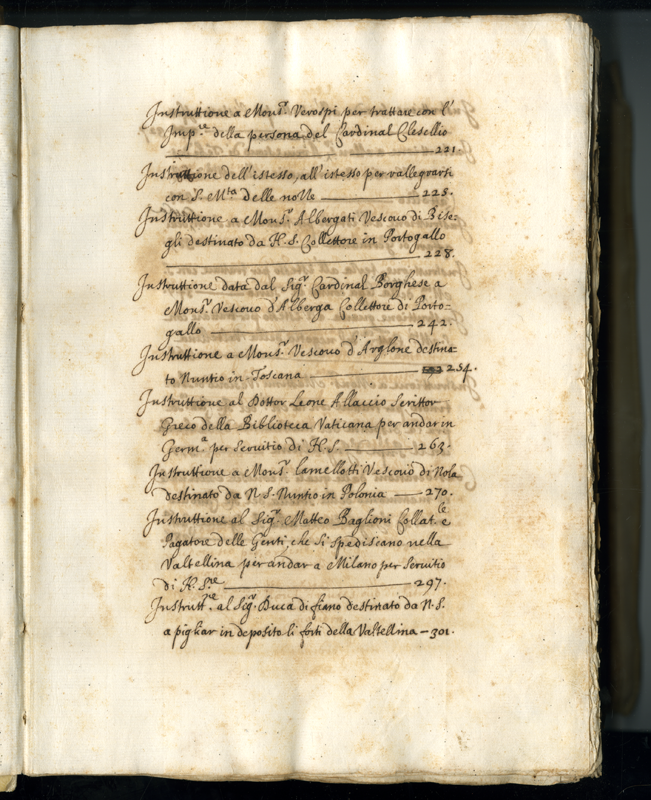 Instruttione a Mons.r Verospi per trattare con l'
Imp.re della persona del Cardinal Cleselio
221.
Instruttione dell'istesso, all'istesso per rallegrarsi
con S. M.ta delle nozze 225.
Instruttione a Mons.r Albergati Vescovo di Bise:
gli destinato da N.S. Collettore in Portogallo
228.
Instruttione data dal Sig.r Cardinal Borghese a
Mons.r Vescovo d'Alberga Collettore di Porto=
gallo 242.
Instruttione a Mons.r Vescovo d' destina=
to Nuntio in Toscana 254.
Instruttione al Dottor Leone Allaccio Scrittor
Greco della Biblioteca Vaticana per andar in
Germ.a per Servitio di N.S. 263.
Instruttione a Mons.r Lancellotti Vescovo di Nola
destinato da N.S. Nuntio in Polonia 270.
Instruttione al Sig.r Matteo Baglioni Collat.le e
Pagatore delle Genti, che si spediscano nella
Valtellina per andar a Milano per Servitio
di N. S.re 297.
Instrutt.ne al Sig.r Duca di fiano destinato da N.S.
a pigliar in deposito li forti della Valtellina – 301.